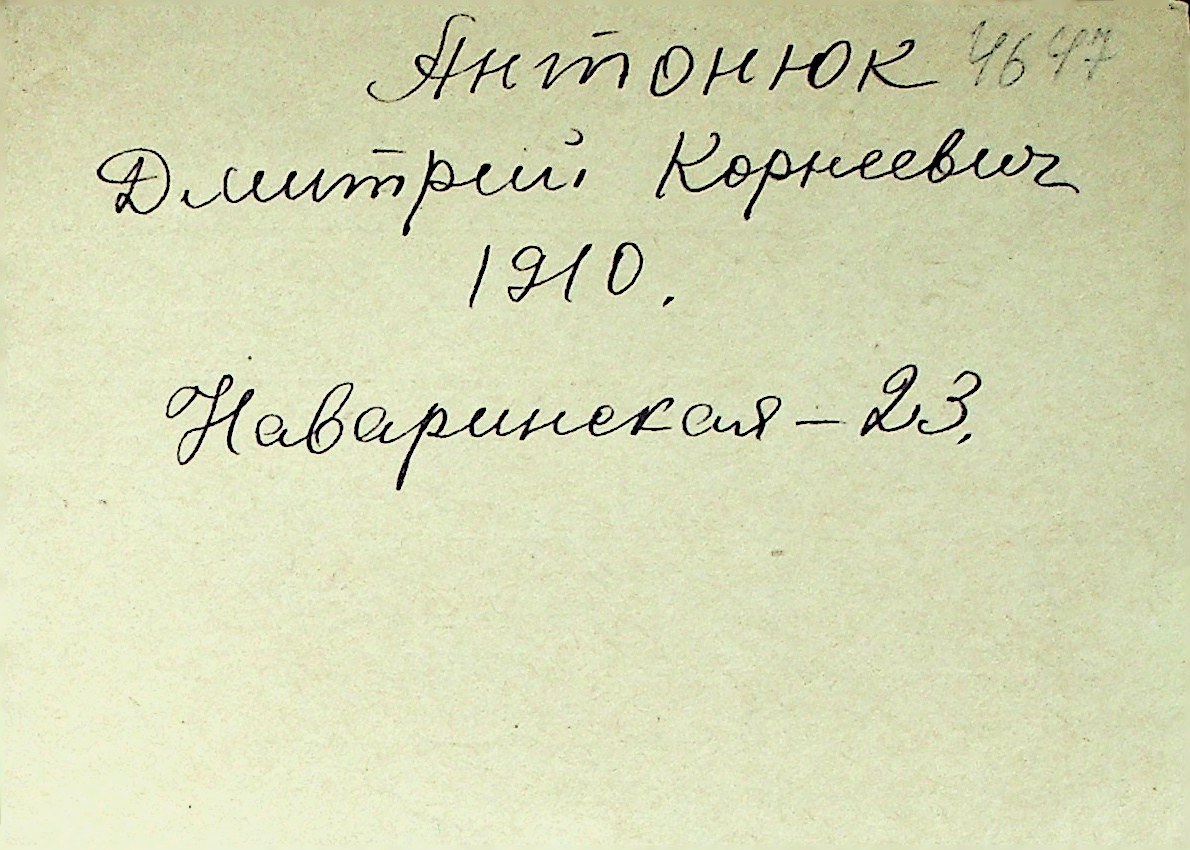 Антонюк 4647
Дмитрий Корнеевич
1910.
Наваринская - 23.